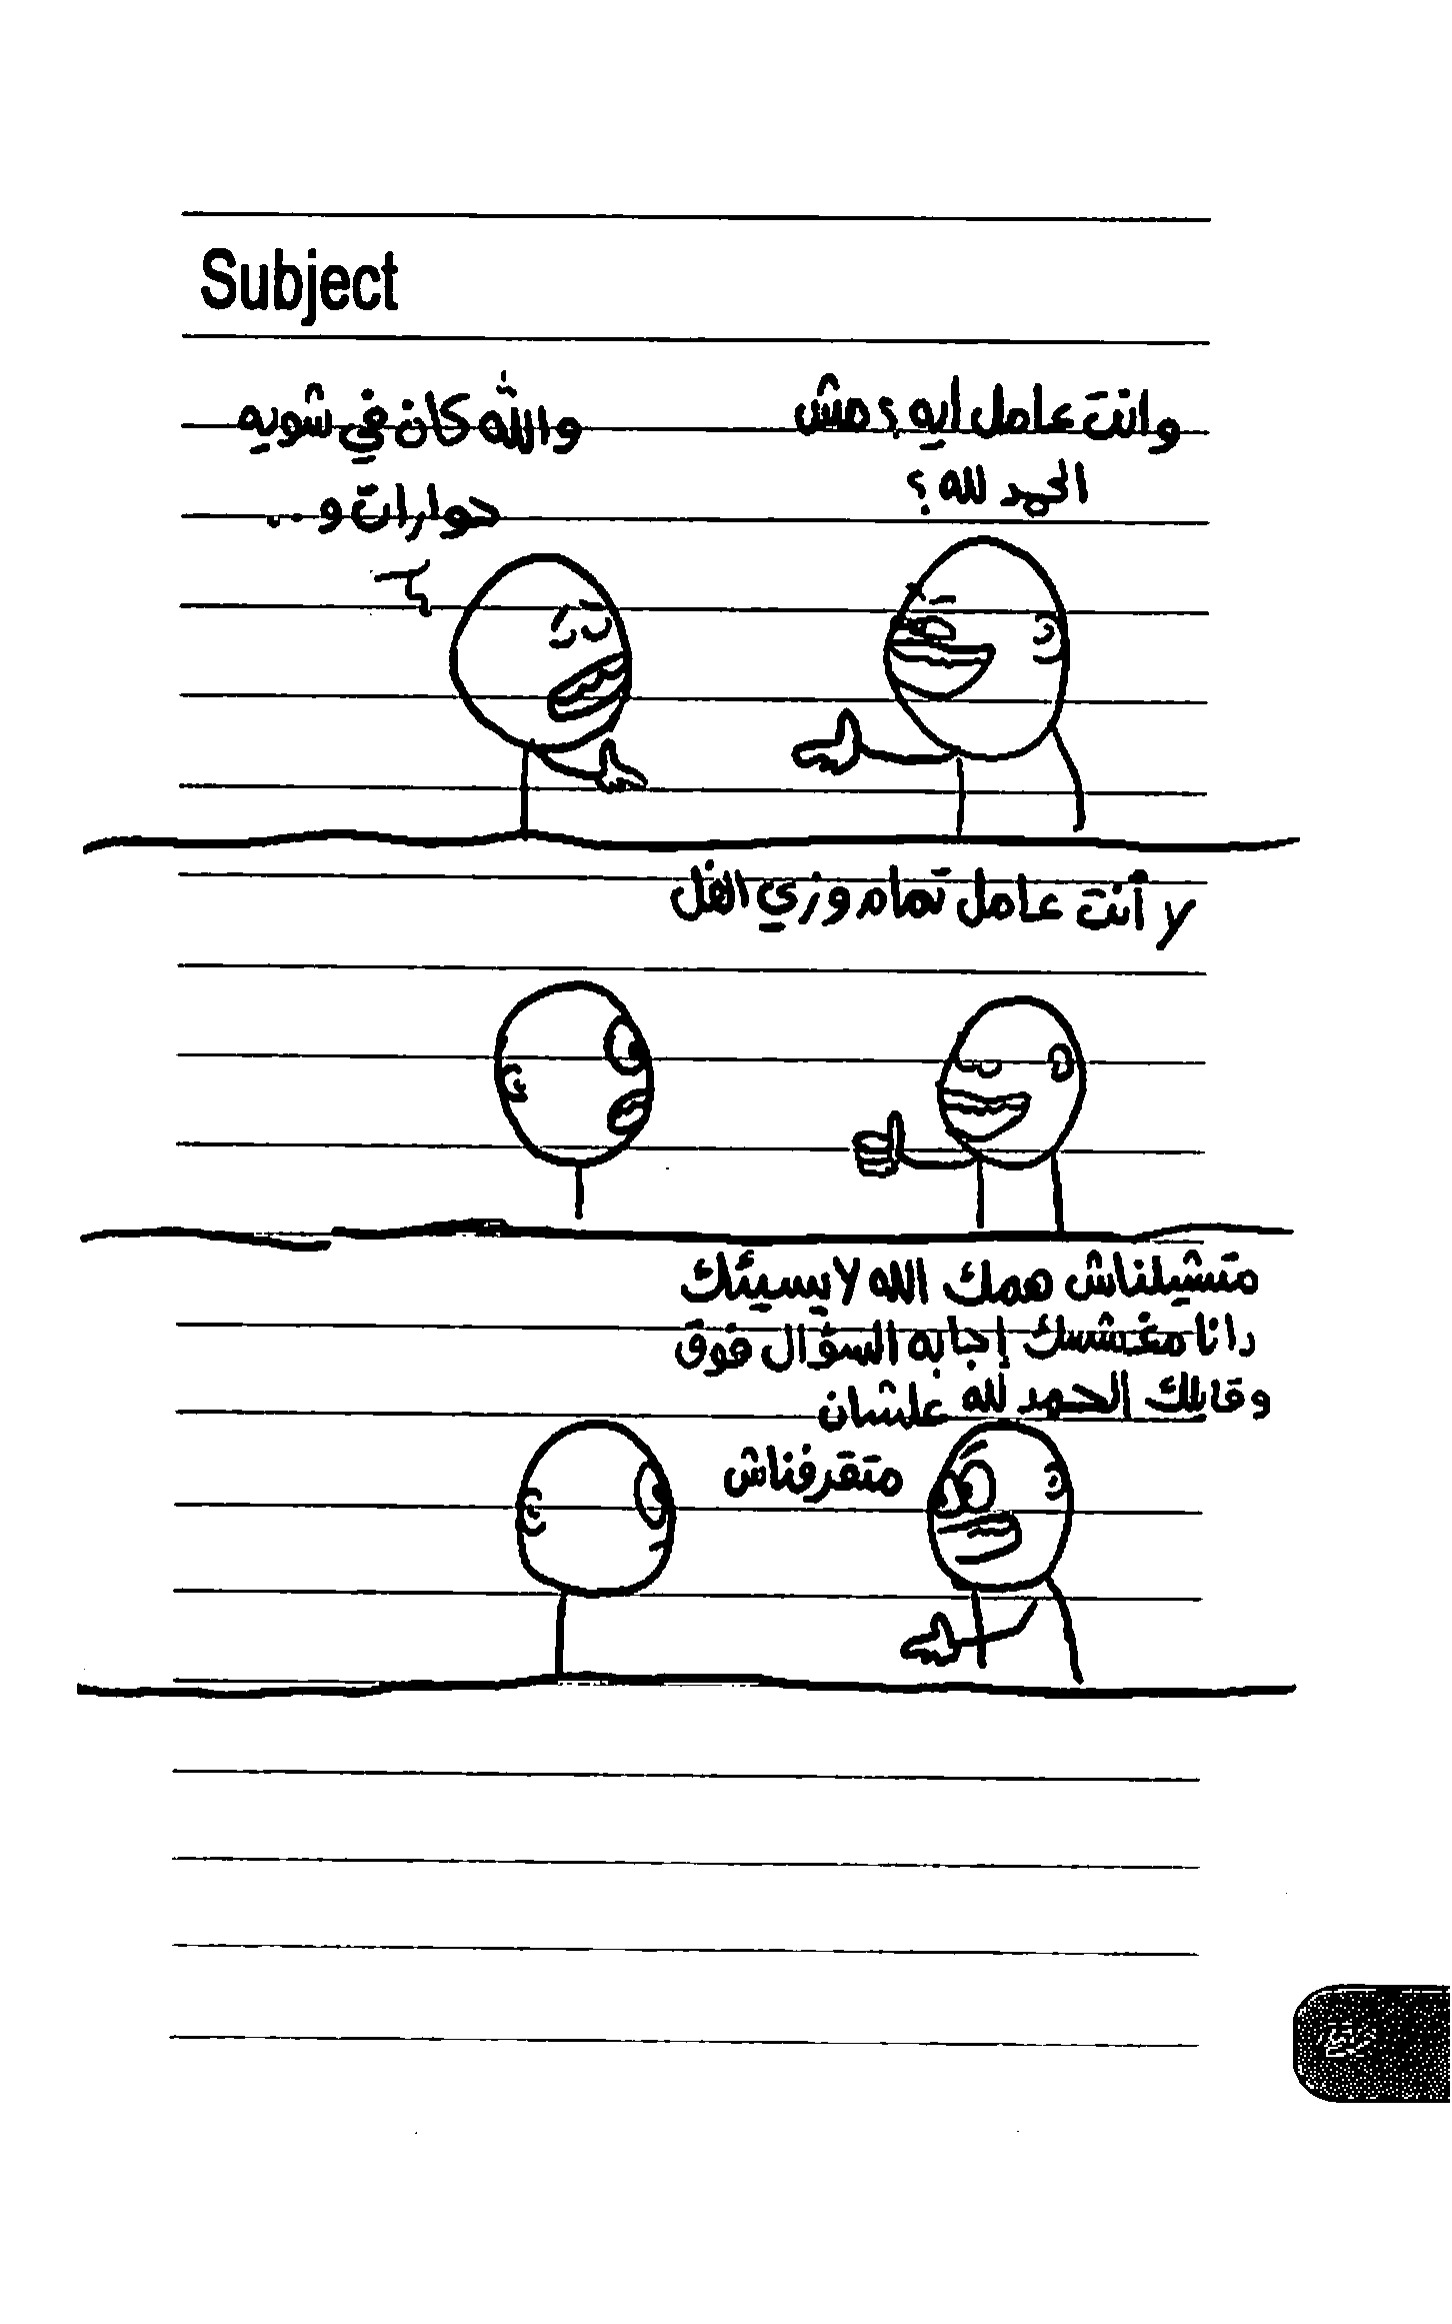 Subject
وانت عامل أيه؟ مش
الحمد لله؟
والله كان في شويه
حوارات و...
لا أنت عامل تمام وزي الفل
متشيلناش همك الله لا يسيئك
دانا مغششك إجابه السؤال فوق
وقايلك الحمد لله علشان
متقرفناش